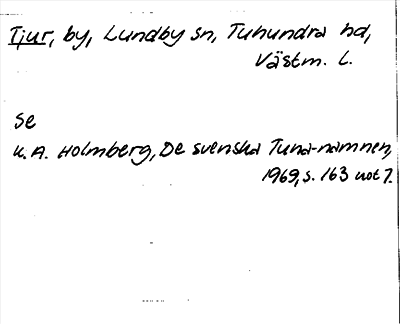 Tjur, by, Lundby sn, Tuhundra hd,
Västm. L.
Se
K.A. Holmberg, De svenska Tuna-namnen,
1969, s. 163 not 7.